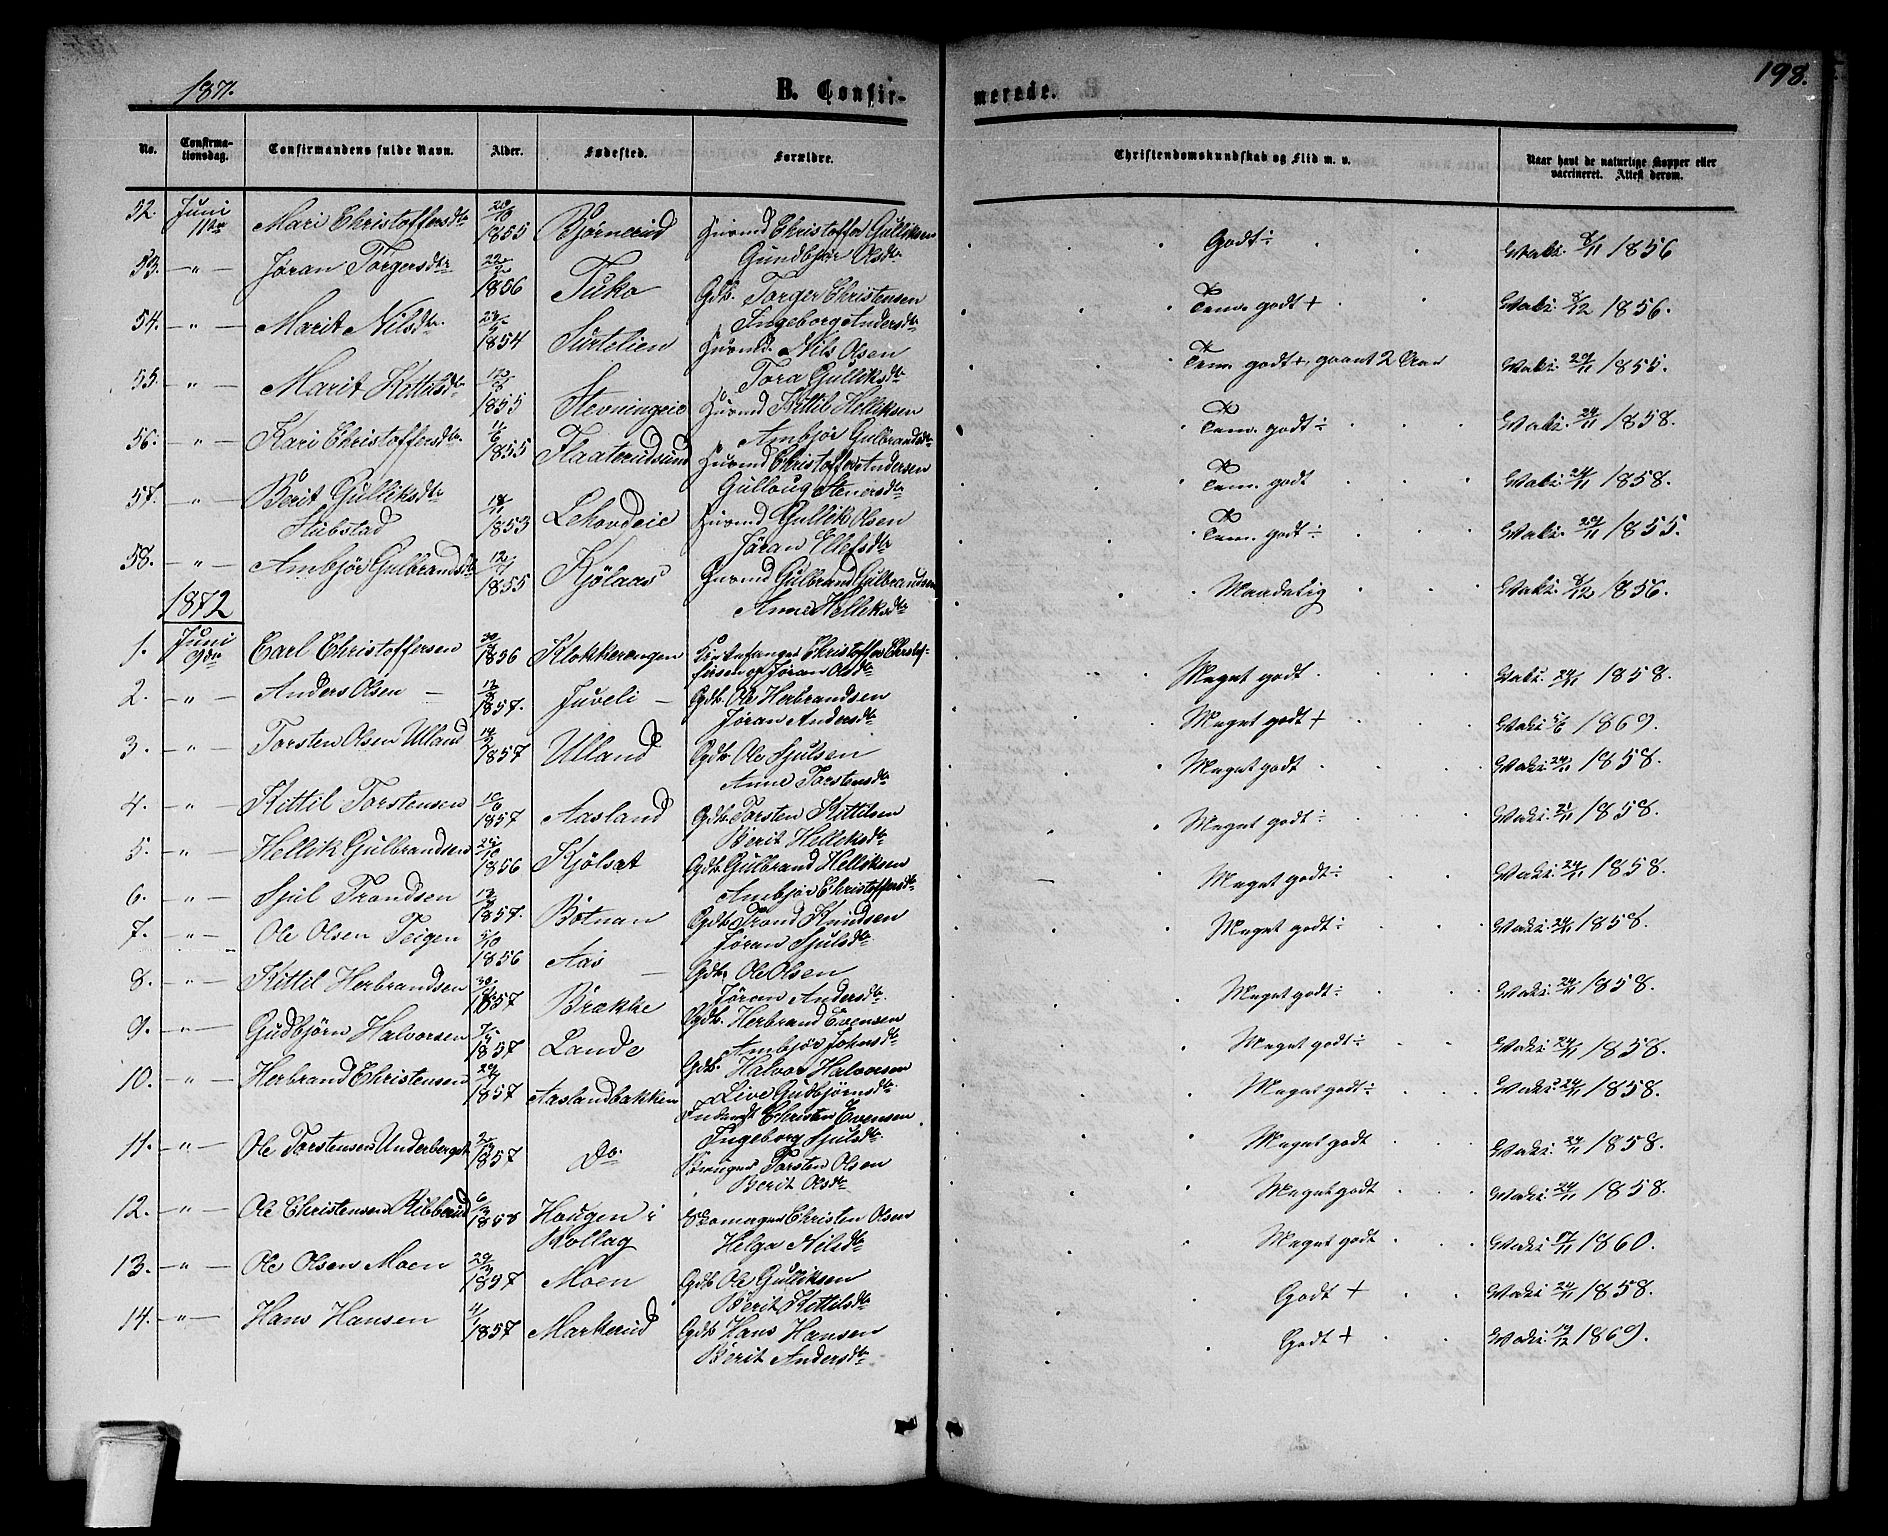 1871. B. Confirmerede. 198.
No. Confirmationsdag. Confirmandens fulde Navn. Alder. Fødested. Forældre. Christendomskundskab og Flid m. v. Naar havt de naturlige Kopper eller vaccineret. Attest derom.
52. Juni 11te Mari Christoffersdtr 1855 Bjørnerud Huusmd Christoffer Gulliksen
Gundbjør Olsdtr Godt ÷ Vaks. 8/11 1856
53. — " — Jøran Torgersdtr 1856 Tuko Gdb. Torger Christensen
Ingeborg Andersdtr Tem. godt + Vaks. 8/12 1856.
54. — " — Marit Nilsdtr. 1854 Surtelien Huusmd. Nils Olsen
Tora Gulliksdtr Tem. godt +, gaaet 2 Aar Vaks. 29/11 1855.
55. — " — Marit Kittilsdtr 1855 Stevningeie Huusmd Kittil Helliksen
Ambjør Gulbrandsdtr Tem. godt ÷ Vaks. 24/11 1858.
56. — " — Kari Christoffersdtr. 1855 Flaaterudsund Huusmd Christoffer Andersen
Gulloug Stenersdtr Tem. godt Vaks. 24/11 1858.
57. — " — Berit Gulliksdtr 18/11 1853 Lehovdeie Huusmd Gullik Olsen
Stubstad Jøran Ellefsdtr Tem. godt ÷ Vaks. 29/11 1855.
58. — " — Ambjør Gulbrandsdtr 1855 Kjølaas Huusmd Gulbrand Gulbrandsen
Anne Helliksdtr Maadelig Vaks. 8/12 1856.
1872
1. Juni 9de Carl Christoffersen 1856 Klokkerengen Christoffer Christof-
fersen og Jøran Olsdtr Meget godt Vaks. 24/11 1858.
2. — " — Anders Olsen — 1857. Juveli — Gdb. Ole Herbrandsen
Jøran Andersdtr Meget godt + Vaks. 1869.
3. — " — Torsten Olsen Ulland 1857 Ulland Gdb. Ole Sjulsen
Anne Torstensdtr Meget godt Vaks. 24/11 1858.
4. — " — Kittil Torstensen 1857 Aasland Gdb. Torsten Kittilsen
Berit Helleksdtr Meget godt ÷ Vaks. 24/11 1858.
5. — " — Hellik Gulbrandsen 1856 Kjølset Gdb. Gulbrand Helliksen
Ambjør Christoffersdtr Meget godt ÷ Vaks. 24/11 1858.
6. — " — Sjul Trondsen 1857. Botnan Gdb. Trond Knudsen
Jøran Sjulsdtr. Meget godt ÷ Vaks. 24/11 1858.
7. — " — Ole Olsen Teigen 5/10 1856 Aas — Gdb. Ole Olsen
Jøran Andersdtr. Meget godt ÷ Vaks. 24/11 1858.
8. — " — Kittil Herbrandsen 1857 Brække Gdb. Herbrand Evensen
Ambjør Johnsdtr Meget godt ÷ Vaks. 24/11 1858.
9. — " — Gudbjørn Halvorsen 1857 Lande Gdb. Halvor Halvorsen
Live Gudbjørnsdtr. Meget godt ÷ Vaks. 24/11 1858.
10. — " — Herbrand Christensen 1857 Aaslandbakken Inderst Christen Evensen
Ingeborg Sjulsdtr. Meget godt Vaks. 24/11 1858.
11. — " — Ole Torstensen Underberget 1857 Do. Torsten Olsen
Berit Olsdtr. Meget godt Vaks. 24/11 1858.
12. — " — Ole Christensen Ribberud 1858 Haugen i Skomager Christen Olsen
Rollag Helga Nilsdtr Meget godt Vaks. 17/11 1860.
13. — " — Ole Olsen Moen 1857 Moen Gdb. Ole Gulliksen
Berit Kittilsdtr Godt + Vaks. 24/11 1858.
14. — " — Hans Hansen 1857 Markerud Gdb. Hans Hansen
Berit Andersdtr Godt + Vaks. 19/12 1869.